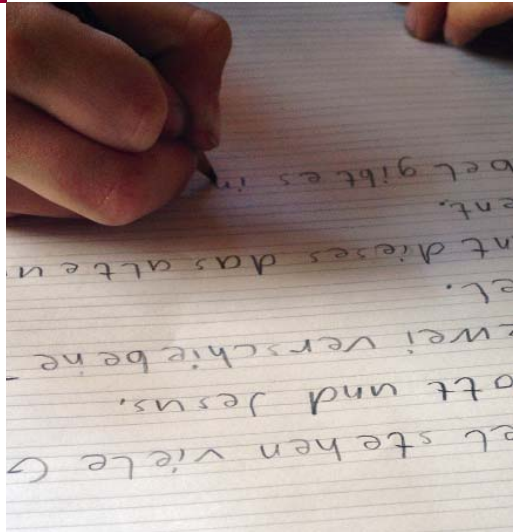 el stehen viele G
ott und Jesus.
zwei verschiebene
el.
nt dieses das alte u
ent.
bel gibt es in